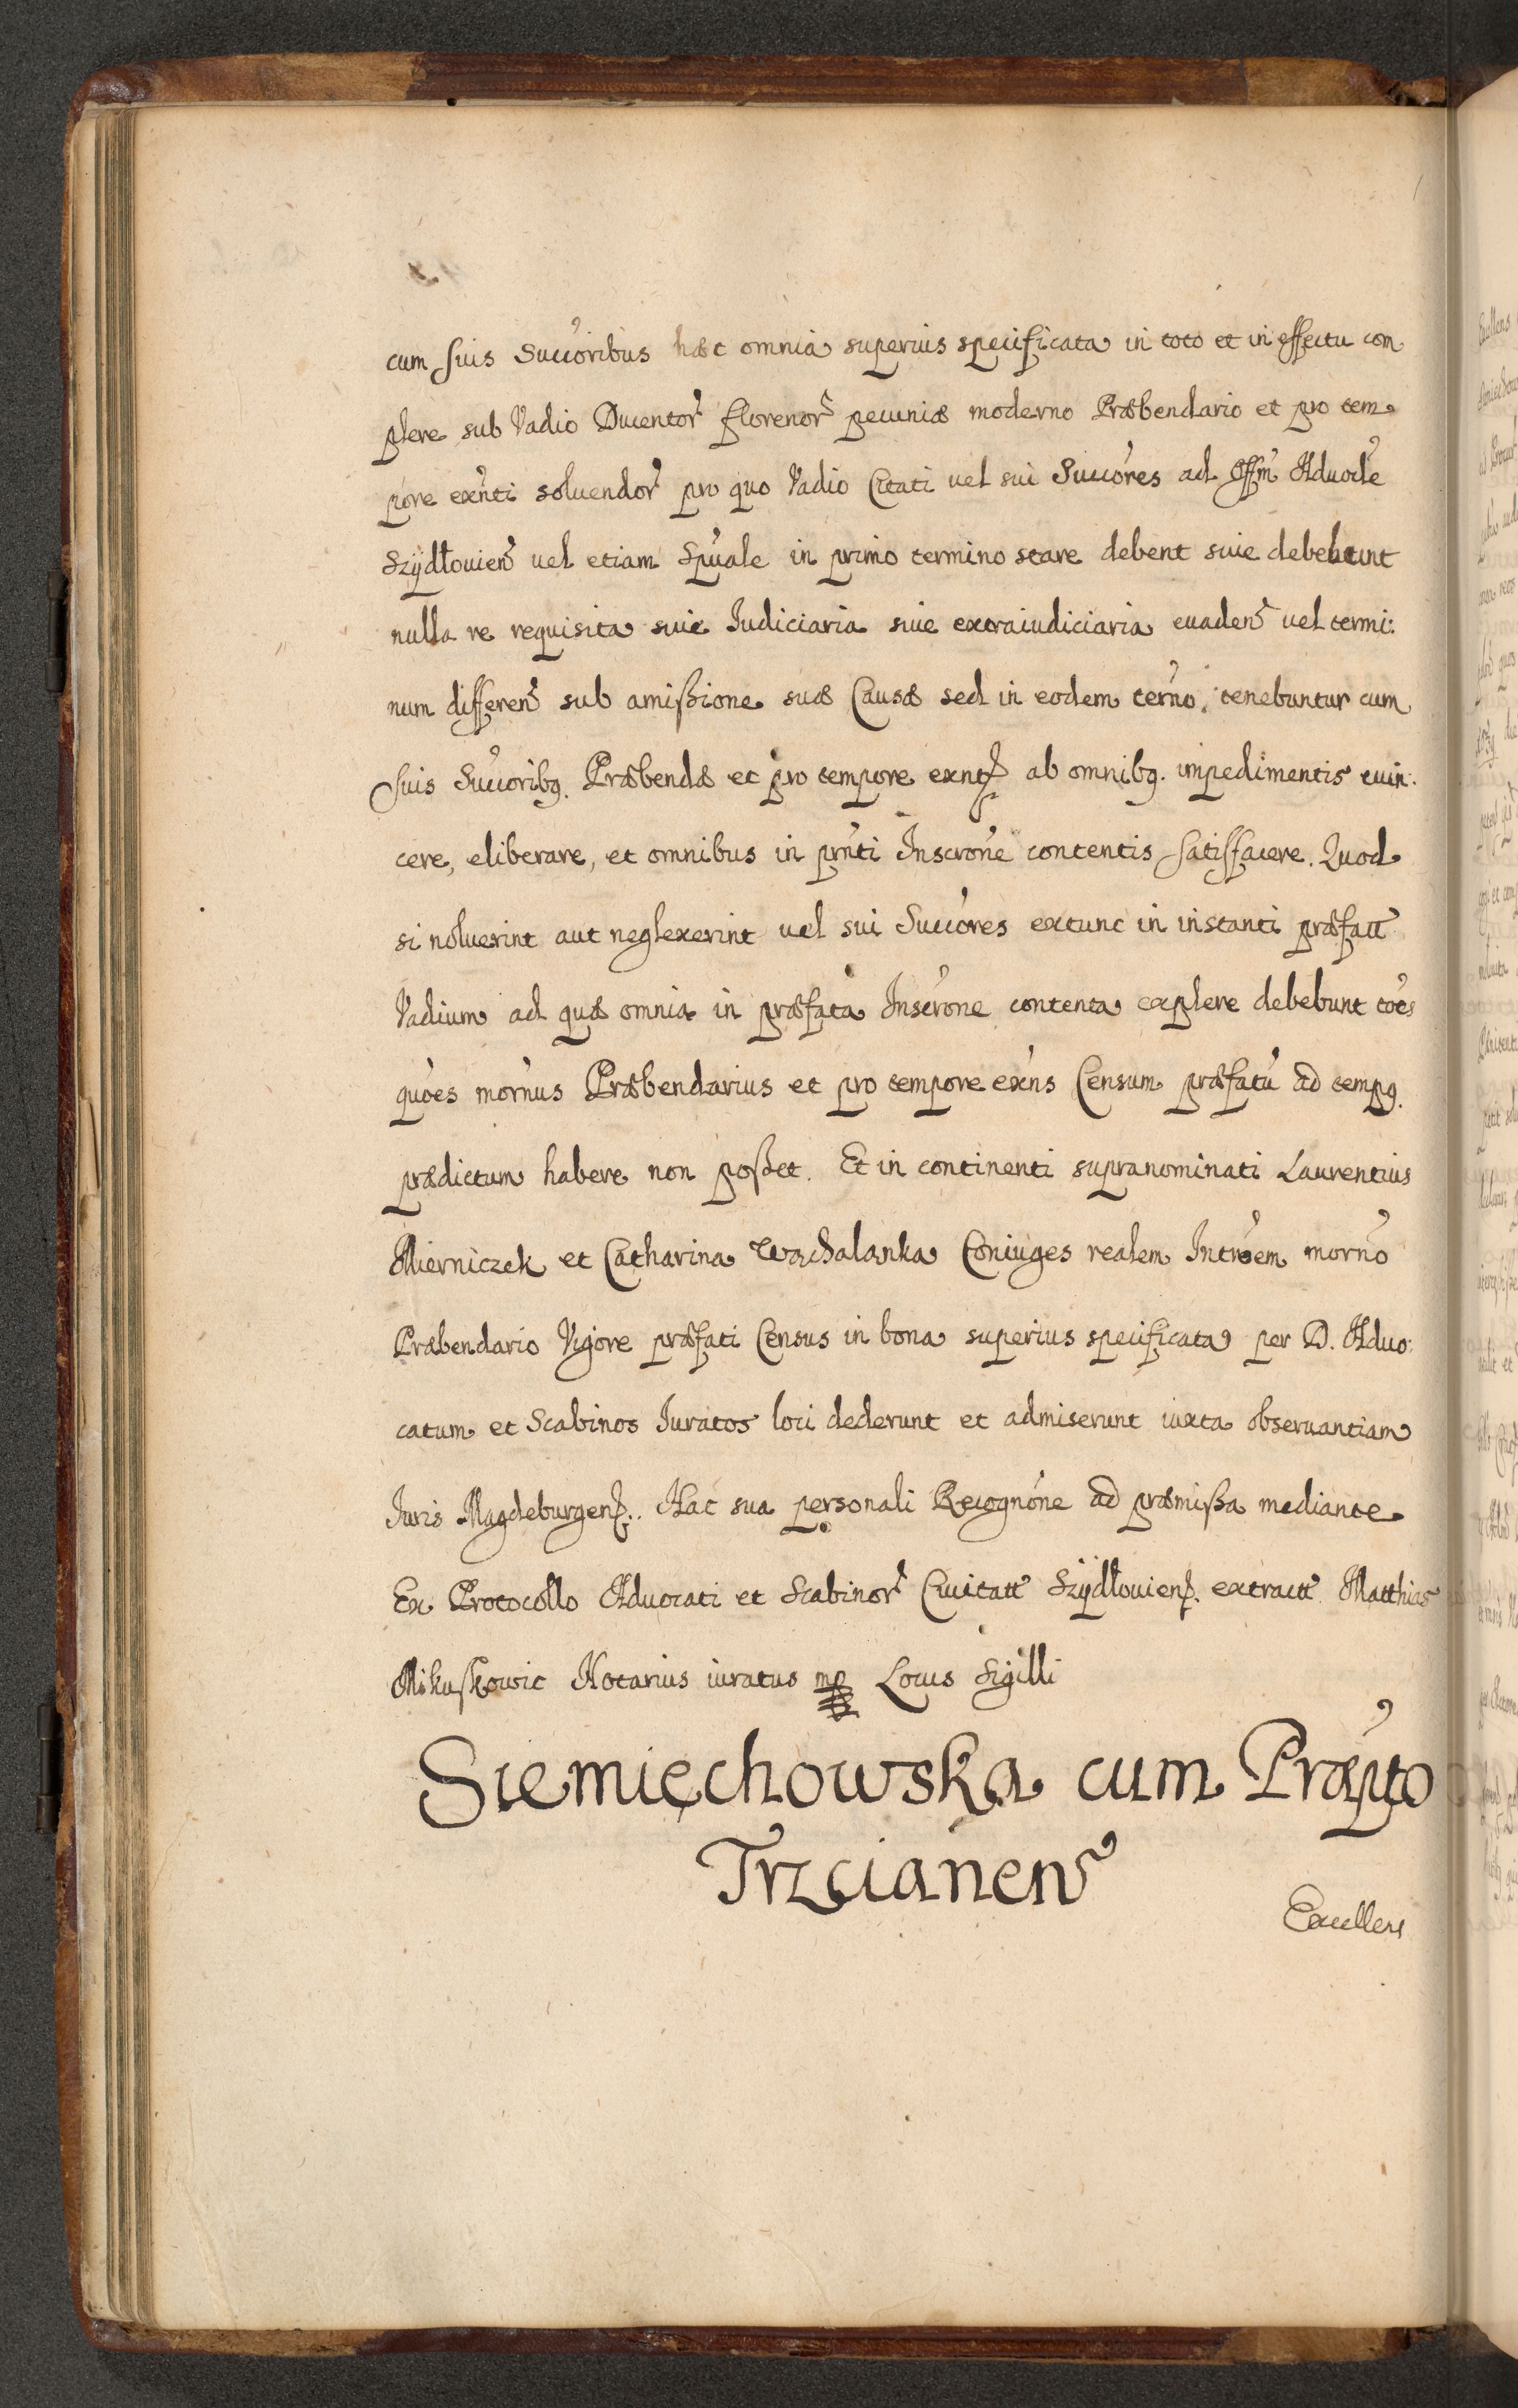 cum suis Succoribus hæc omnia superius specificata in toto et in effectu com
plere sub Vadio Ducentor florenor pecuniæ moderno Præbendario et pro tem
pore exnti soluendor pro quo Vadio Citati uel sui Succores ad Offm Aduocle
Szÿdłouien uel etiam Spuale in primo termino stare debent siue debebunt
nulla re requisita siue Iudiciaria siue extraiudiciaria euaden uel termi:
num differen sub amißione suæ Causæ sed in eodem terno, tenebuntur cum
suis Succoribq. Præbendæ et pro tempore exntz ab omnibq. impedimentis euin:
cere, eliberare, et omnibus in prnti Inscrone contentis satisfacere. Quod
si noluerint aut neglexerint uel sui Succores extunc in instanti præfatt
Vadium ad quæ omnia in præfata Inscrone contenta explere debebunt toes
quoes mornus Præbendarius et pro tempore exns Censum præfatu ad tempq.
prædictum habere non poßet. Et in continenti supranominati Laurentius
Mierniczek et Catharina Wachalanka Coniuges realem Introem morno
Præbendario Vigore præfati Census in bona superius specificata per D. Aduo:
catum et Scabinos Iuratos loci dederunt et admiserunt iuxta obseruantiam
Iuris Magdeburgens. Hac sua personali Recognone ad præmißa mediante
Ex Protocollo Aduocati et Scabinor Ciuitatt Szÿdłouiens. extractt Matthias
Mikuskowic Notarius iuratus mp Locus Sigilli
Siemięchowska cum Præpto
Trzcianen
Excellens